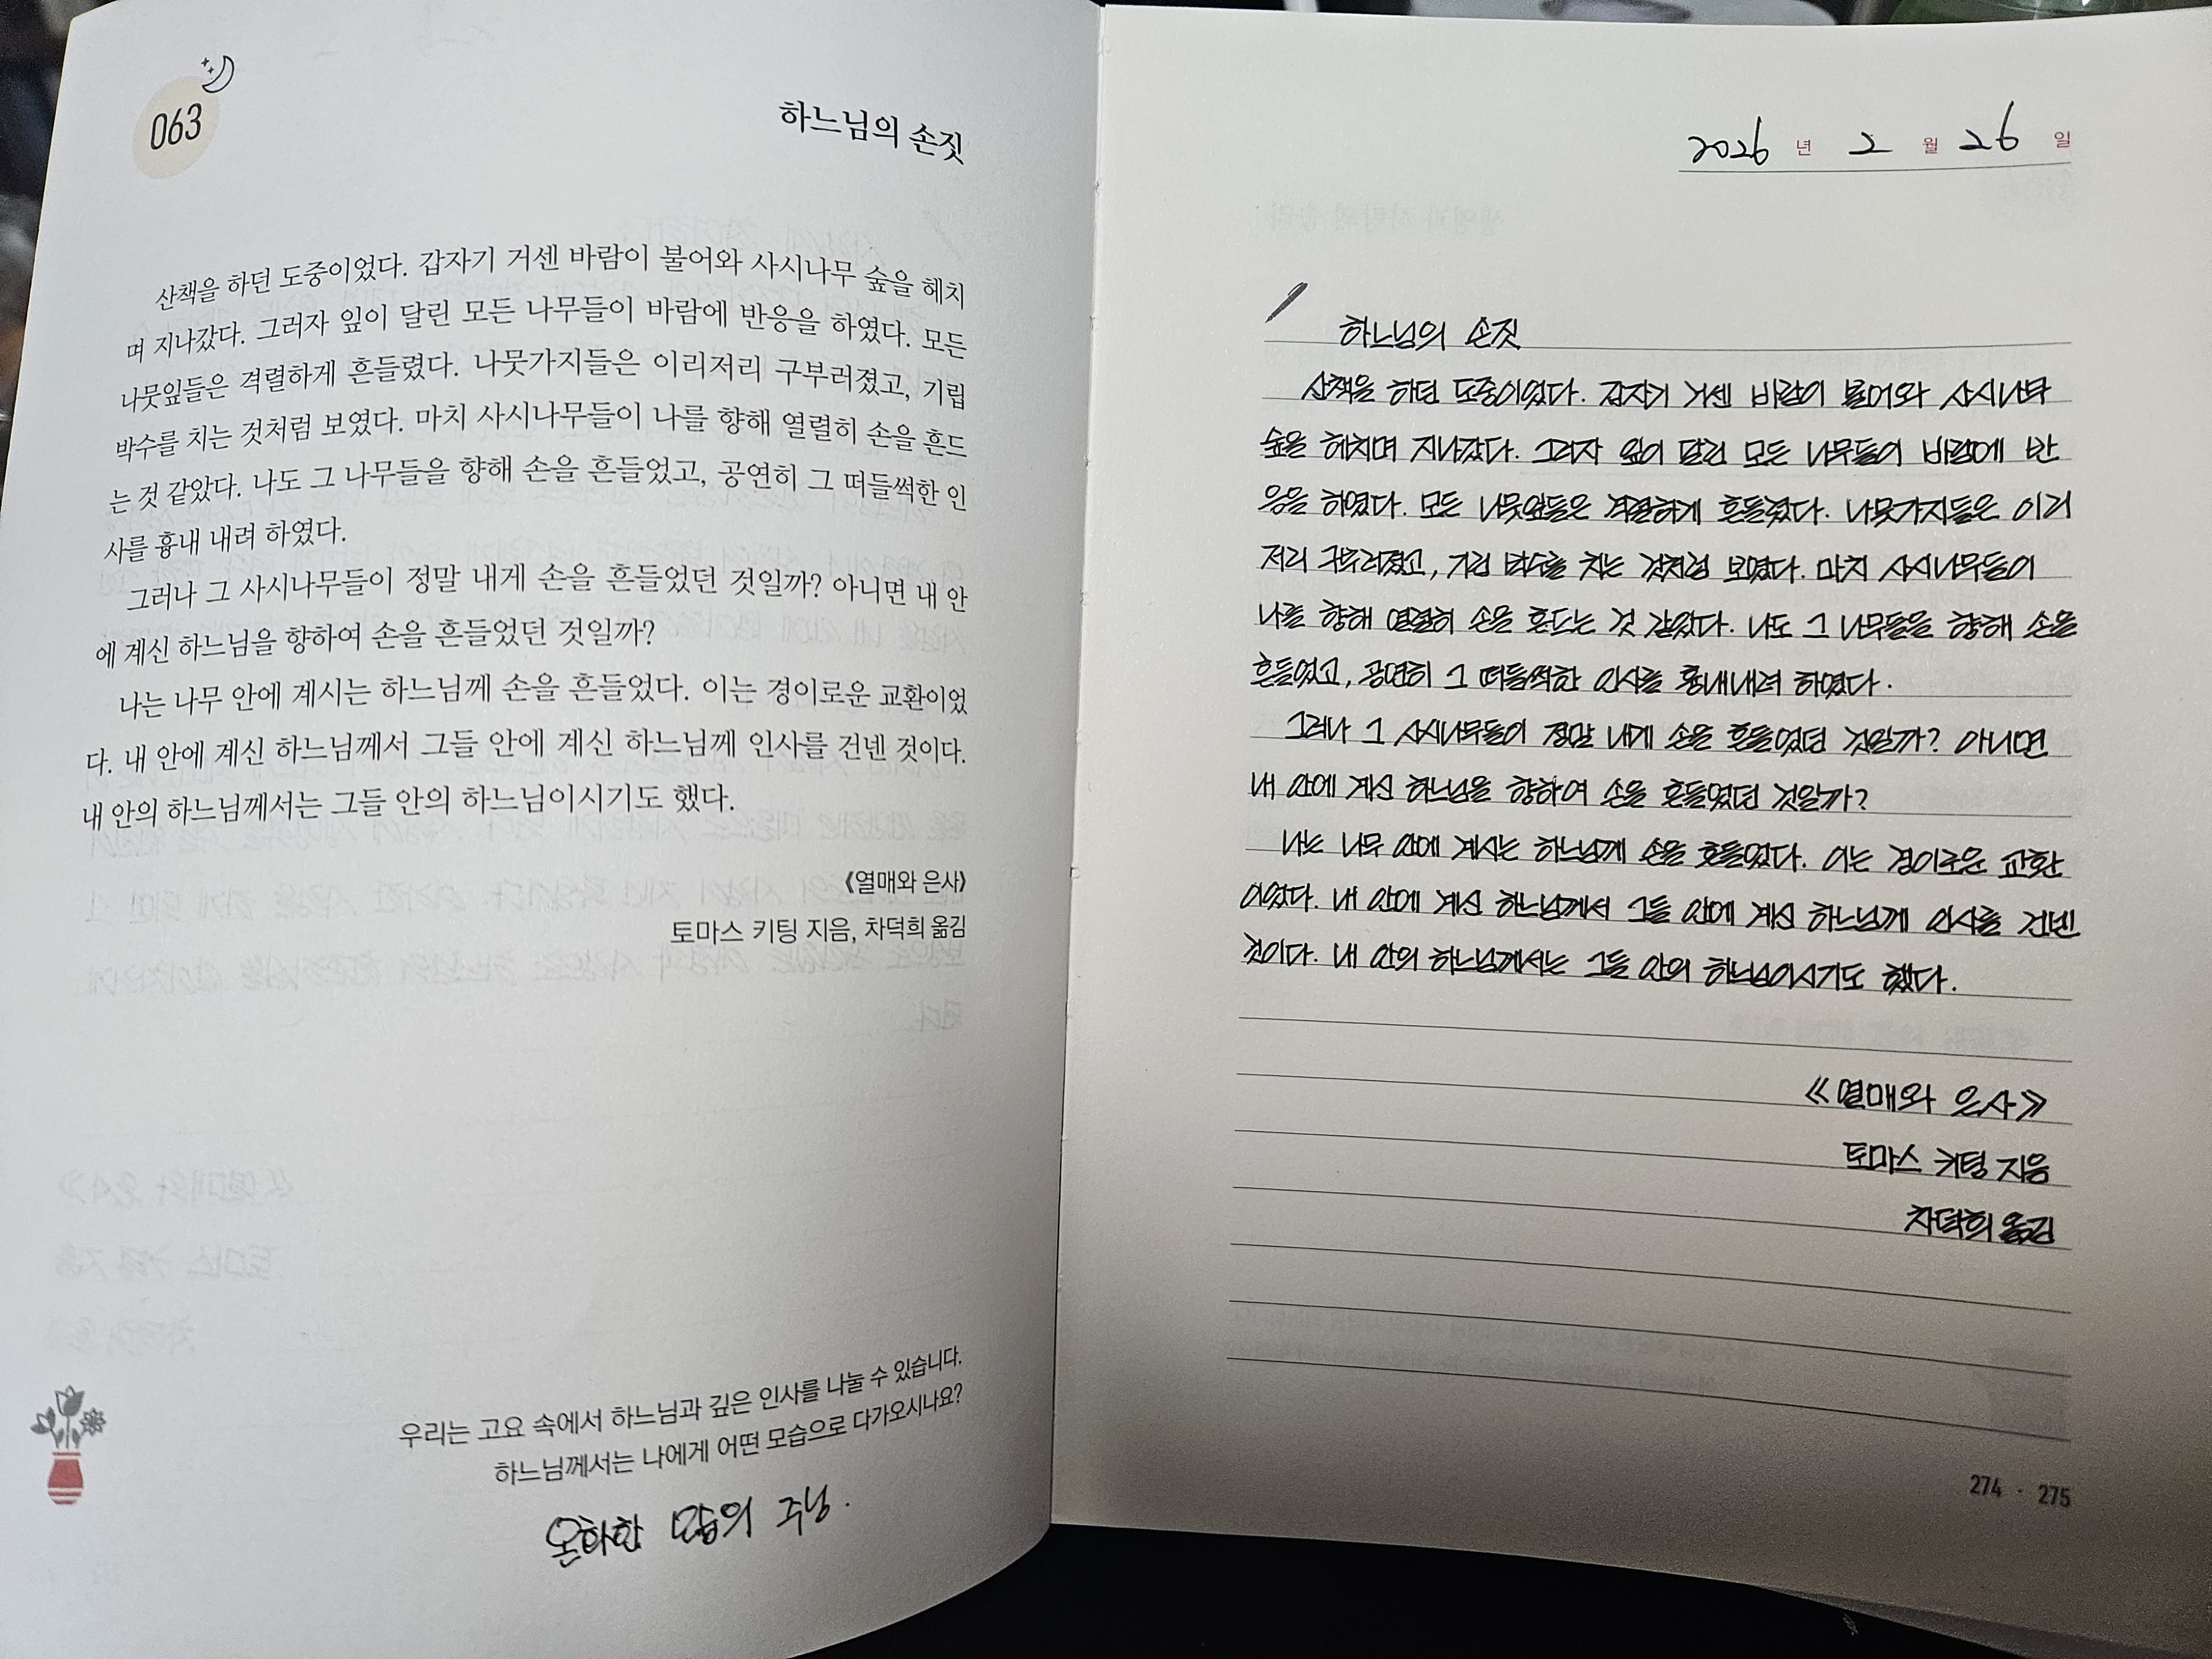 063
하느님의 손짓
산책을 하던 도중이었다. 갑자기 거센 바람이 불어와 사시나무 숲을 헤치
며 지나갔다. 그러자 잎이 달린 모든 나무들이 바람에 반응을 하였다. 모든
나뭇잎들은 격렬하게 흔들렸다. 나뭇가지들은 이리저리 구부러졌고, 기립
박수를 치는 것처럼 보였다. 마치 사시나무들이 나를 향해 열렬히 손을 흔드
는 것 같았다. 나도 그 나무들을 향해 손을 흔들었고, 공연히 그 떠들썩한 인
사를 흉내 내려 하였다.
그러나 그 사시나무들이 정말 내게 손을 흔들었던 것일까? 아니면 내 안
에 계신 하느님을 향하여 손을 흔들었던 것일까?
나는 나무 안에 계시는 하느님께 손을 흔들었다. 이는 경이로운 교환이었
다. 내 안에 계신 하느님께서 그들 안에 계신 하느님께 인사를 건넨 것이다.
내 안의 하느님께서는 그들 안의 하느님이시기도 했다.
《열매와 은사》
토마스 키팅 지음, 차덕희 옮김
우리는 고요 속에서 하느님과 깊은 인사를 나눌 수 있습니다.
하느님께서는 나에게 어떤 모습으로 다가오시나요?
온화한 모습의 주님.
2026 년 2 월 26 일
하느님의 손짓
산책을 하던 도중이었다. 갑자기 거센 바람이 불어와 사시나무
숲을 헤치며 지나갔다. 그러자 잎이 달린 모든 나무들이 바람에 반
응을 하였다. 모든 나뭇잎들은 격렬하게 흔들렸다. 나뭇가지들은 이리
저리 구부러졌고, 기립 박수를 치는 것처럼 보였다. 마치 사시나무들이
나를 향해 열렬히 손을 흔드는 것 같았다. 나도 그 나무들을 향해 손을
흔들었고, 공연히 그 떠들썩한 인사를 흉내내려 하였다.
그러나 그 사시나무들이 정말 내게 손을 흔들었던 것일까? 아니면
내 안에 계신 하느님을 향하여 손을 흔들었던 것일까?
나는 나무 안에 계시는 하느님께 손을 흔들었다. 이는 경이로운 교환
이었다. 내 안에 계신 하느님께서 그들 안에 계신 하느님께 인사를 건넨
것이다. 내 안의 하느님께서는 그들 안의 하느님이시기도 했다.
《열매와 은사》
토마스 키팅 지음
차덕희 옮김
274 · 275